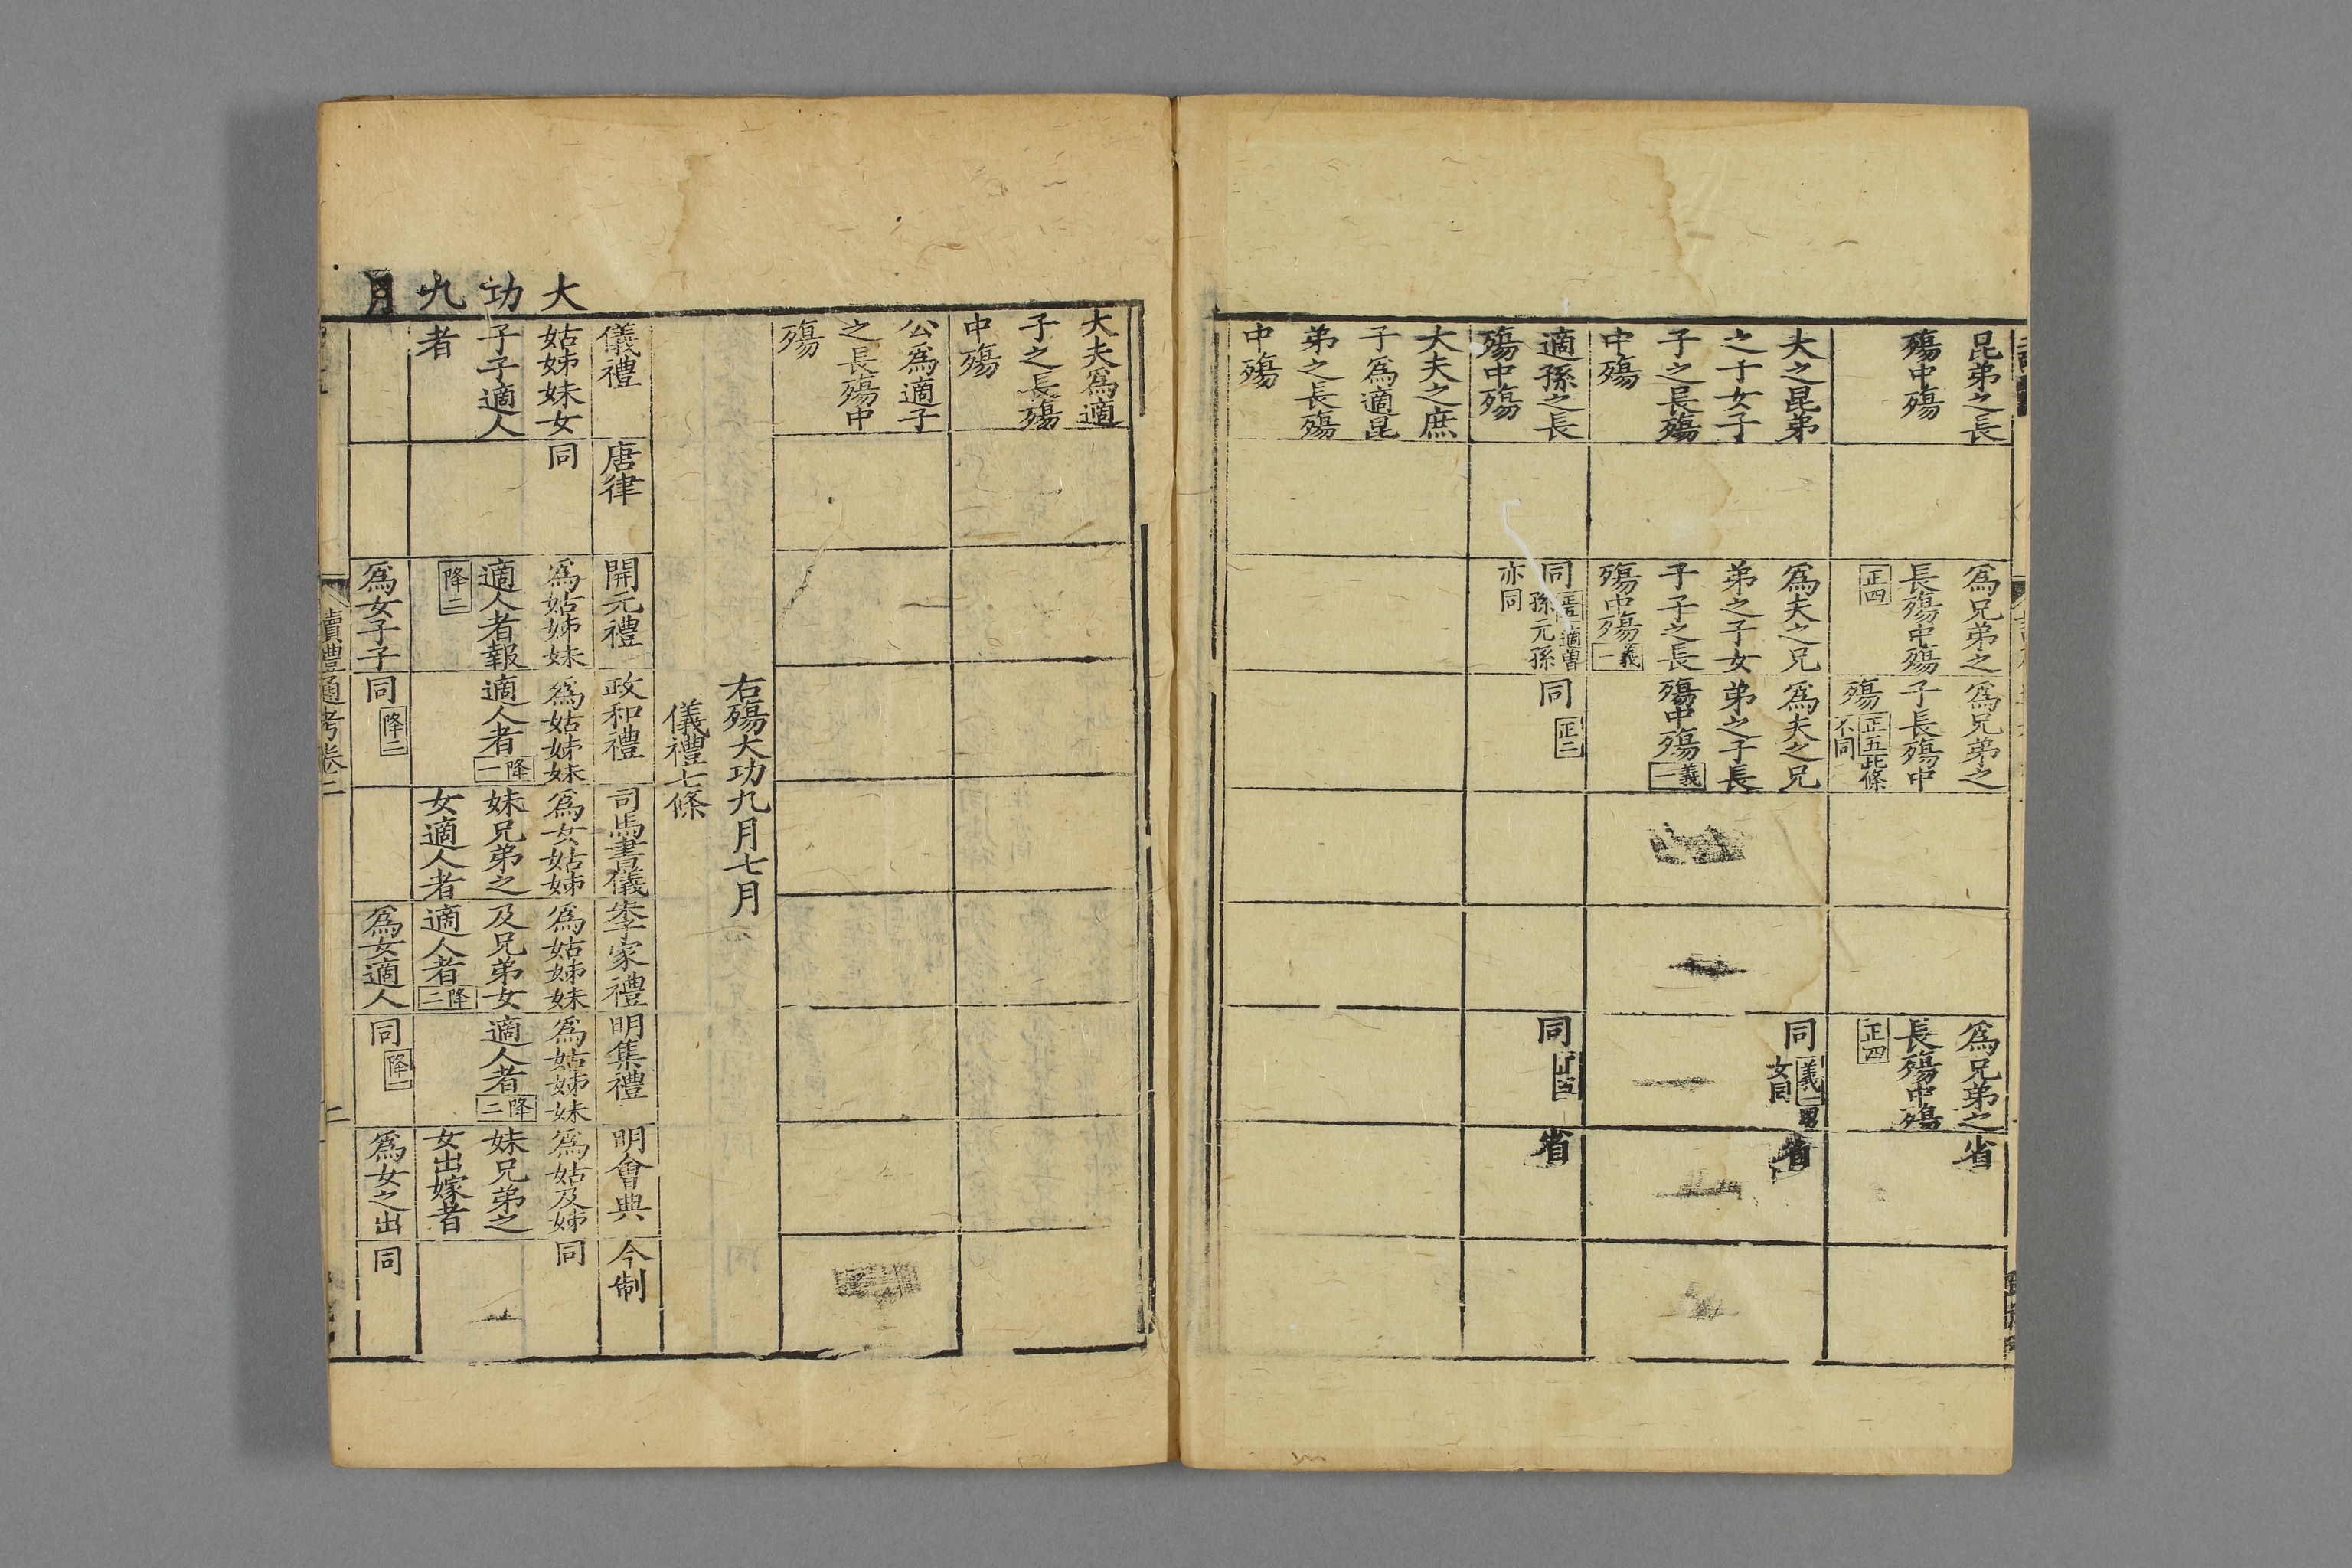 昆弟之長
殤中殤
爲兄弟之
長殤中殤
正四
爲兄弟之
子長殤中
殤正五此條
不同
爲兄弟之
長殤中殤
正四
省
夫之昆弟
之子女子
子之長殤
中殤
爲夫之兄
弟之子女
子子之長
殤中殤義一
爲夫之兄
弟之子長
殤中殤義一
同義一男
女同
省
適孫之長
殤中殤
同 適曾
孫元孫
亦同
同正二
同正五
省
大夫之庶
子爲適昆
弟之長殤
中殤
大夫爲適
子之長殤
中殤
公爲適子
之長殤中
殤
右殤大功九月七月
儀禮七條
大功九月
儀禮
唐律
開元禮
政和禮
司馬書儀
朱子家禮
明集禮
明會典
今制
姑姊妹女
子子適人
者
同
爲姑姊妹
適人者報
降二
爲姑姊妹
適人者降一
爲女姑姊
妹兄弟之
女適人者
爲姑姊妹
及兄弟女
適人者降二
爲姑姊妹
適人者降二
爲姑及姊
妹兄弟之
女出嫁者
同
爲女子子
同降二
爲女適人
同降一
爲女之出
同
讀禮通考卷二
二